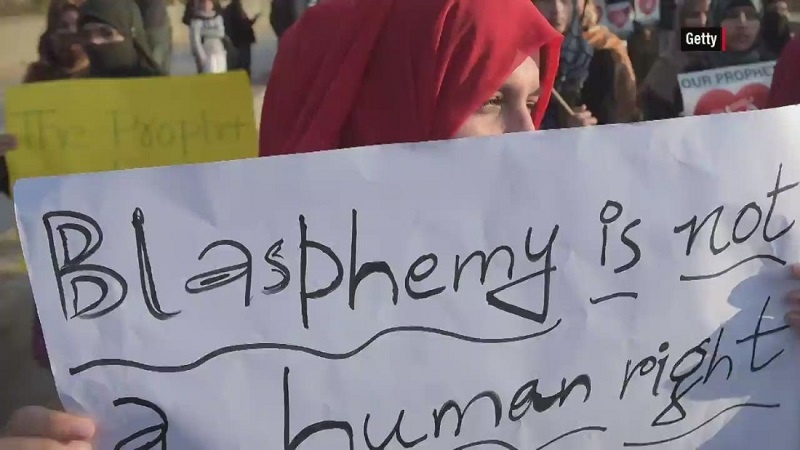 Getty
OUR PROPHET
The Prophet
Blasphemy is not
a human right